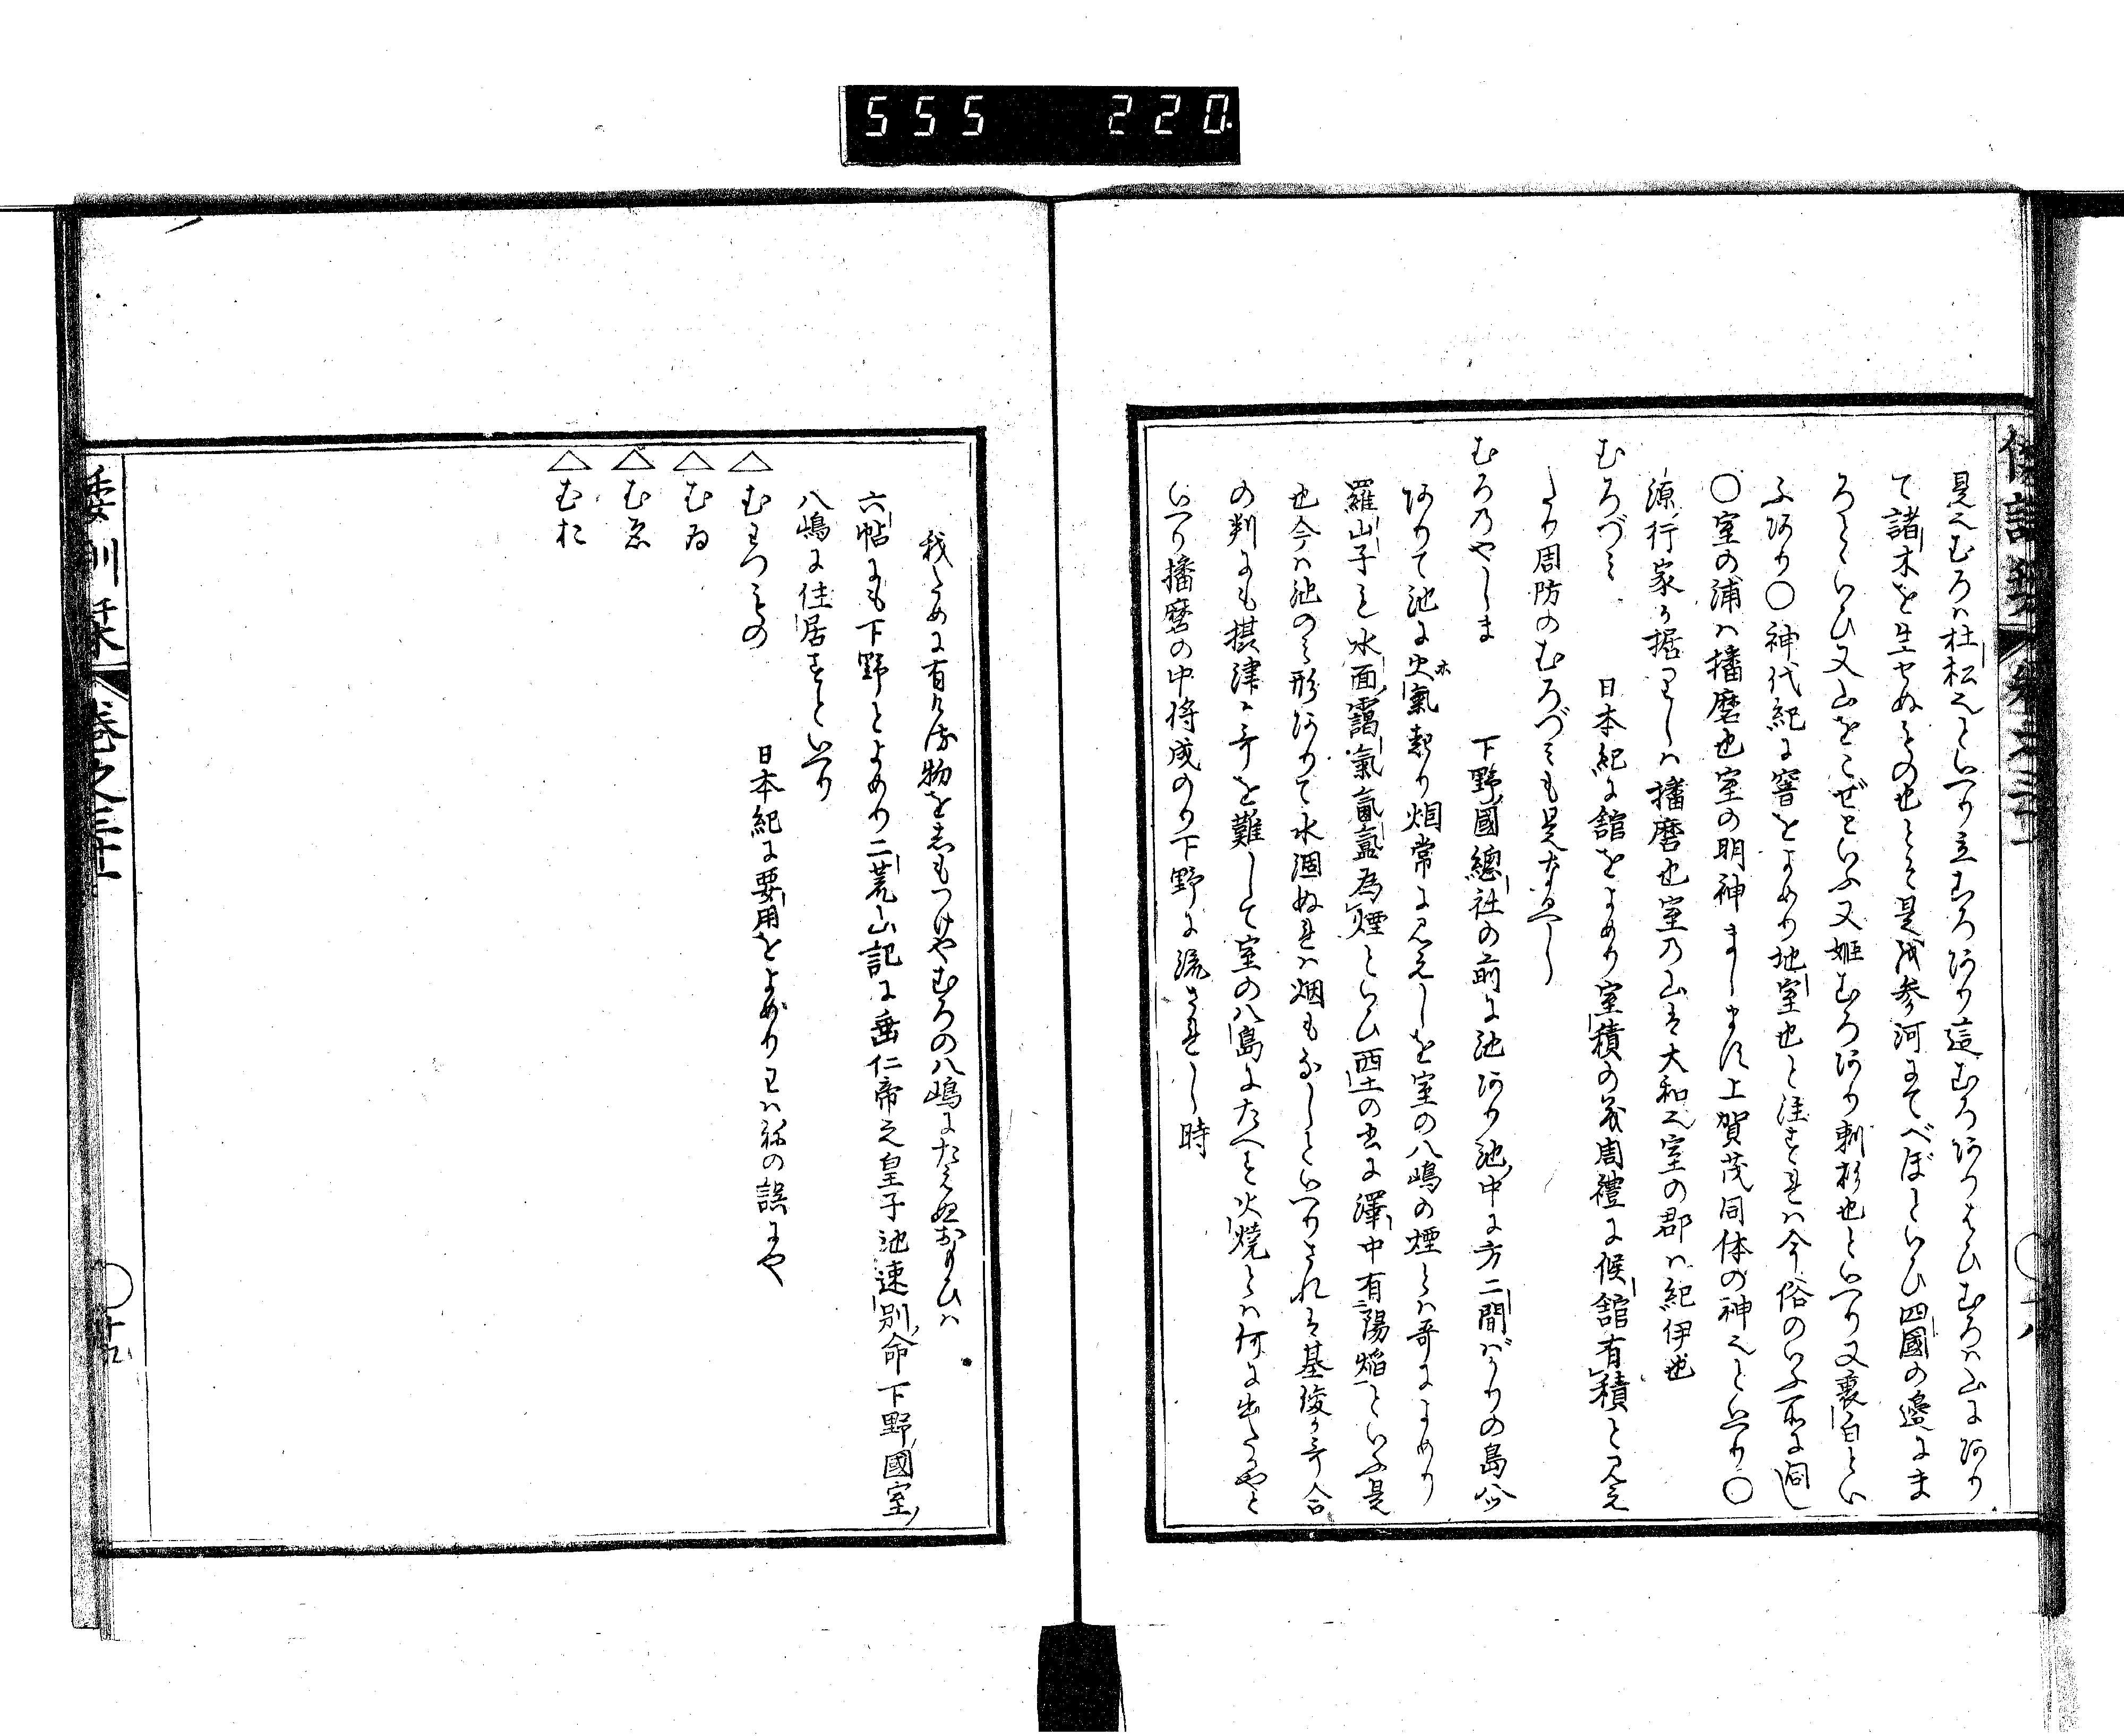 555 220
見えむろハ杜松也といへり立むろあり這むろありはひむろハ山にあり
て諸木を生せぬもの也とそ是を参河にてべぼといひ四國の邊にま
ろといひ又山をこぜといふ又姫むろあり刺杉也といへり又裏白とい
ふあり〇神代紀に窨をよめり地室也と注すれハ今俗のいふ所に同し
〇室の浦ハ播磨也室の明神ましますハ上賀茂同体の神也といへり〇
源行家か据りしハ播磨也室乃山は大和也室の郡ハ紀伊也
むろづみ 日本紀に舘をよめり室積の義周禮に候舘有積と見え
たり周防のむろづみも是なるへし
むろのやしま 下野國總社の前に池あり池中に方二間ばかりの島八
ありて池に火氣起り烟常に見えしを室の八嶋の煙とハ哥によめり
羅山子も水面靄氣氤氳為煙といひ西土の書に澤中有陽焔といふ是
也今ハ池のみ形ありて水涸ぬれハ烟もなしといへりされは基俊か哥合
の判にも摂津か哥を難して室の八島にたへす火焼とハ何に出たるやと
いへり播磨の中将成のり下野に流されし時
我ために有ける物をしもつけやむろの八嶋にたえぬおもひハ
六帖にも下野とよめり二荒山記に垂仁帝之皇子池速別命下野國室
八嶋に住居すといへり
△むわつみの 日本紀に要用をよめりわハねの誤にや
△むゐ
△むゑ
△むお
倭訓栞 巻之三十二 〇十九